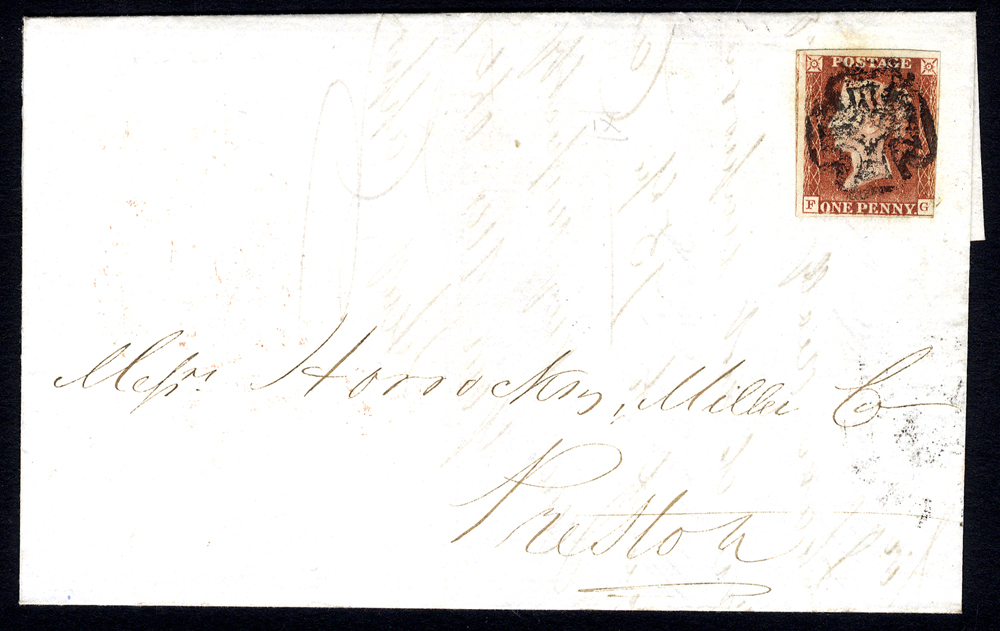 POSTAGE
F G
ONE PENNY.
IX
Messrs Horrockses, Miller Co
Preston